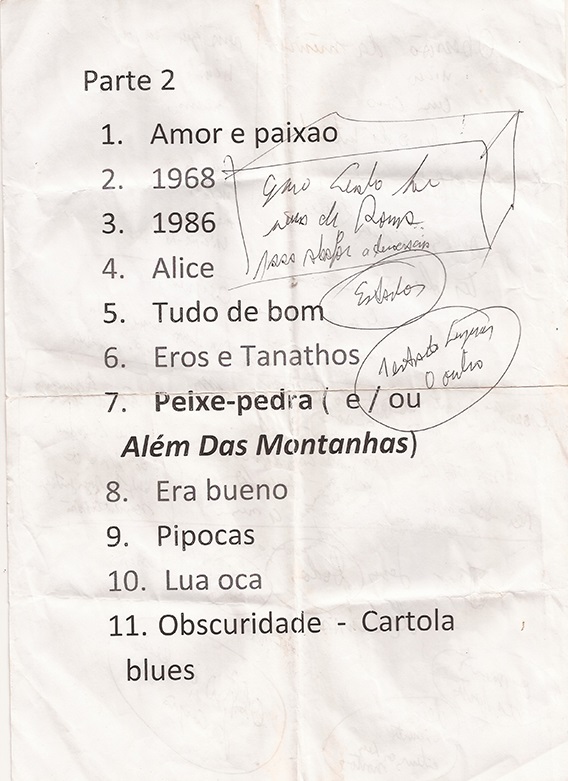 Parte 2
1. Amor e paixao
2. 1968
3. 1986
4. Alice
5. Tudo de bom
6. Eros e Tanathos
7. Peixe-pedra ( e / ou
Além Das Montanhas)
8. Era bueno
9. Pipocas
10. Lua oca
11. Obscuridade - Cartola
blues
de Roma
Estados
O outro